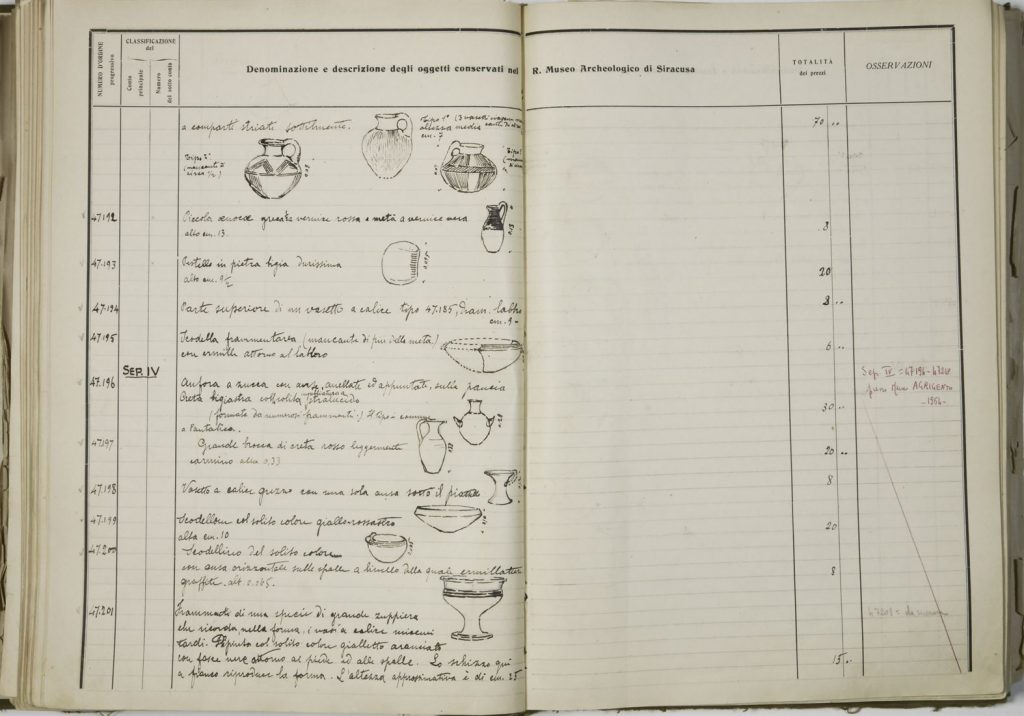 NUMERO D'ORDINE progressivo
CLASSIFICAZIONE del
Conto principale
Numero del sotto conto
Denominazione e descrizione degli oggetti conservati nel R. Museo Archeologico di Siracusa
TOTALITÀ dei prezzi
OSSERVAZIONI
a comparti striati sottilmente.
Tipo 1° (3 vasetti
altezza media
cm. 7
70 ..
Tipo 2°
(mancante
circa ½)
47.192 Piccola oenocoe grezza vernice rossa e metà a vernice nera 8
alto cm. 13
47.193 Pestello in pietra bigia durissima 20
alto cm. 9½
47.194 Parte superiore di un vasetto a calice tipo 47.185, diam. labbro 8 ..
cm. 9 -
47.195 Scodella frammentaria (mancante di più della metà) 6 ..
con ermille attorno al labbro
SEP. IV
Sep. IV = 47196-47201
AGRIGENTO
-1954-
47.196 Anfora a zucca con anse anellate ed appuntati, sulla pancia
Creta bigiastra col solito stralucido
(formata da numerosi frammenti) Il tipo è comune 30 ..
a Pantalica.
47.197 Grande brocca di creta rosso leggermente 20 ..
carmino alta 0,33
47.198 Vasetto a calice grezzo con una sola ansa sotto il piatto 8
47.199 Scodellone col solito colore giallo-rossastro 20
alta cm. 10
47.200 Scodellino del solito colore
con ansa orizzontale sulle spalle a livello della quale 8
graffite. alt. 0.065.
47.201 Frammenti di una specie di grande zuppiera
47201 =
che ricorda, nella forma, i vasi a calice micenei
tardi. Dipinto col solito colore gialletto aranciato
con fasce nere attorno al piede ed alle spalle. Lo schizzo qui 15 ..
a fianco riproduce la forma. L'altezza approssimativa è di cm. 25